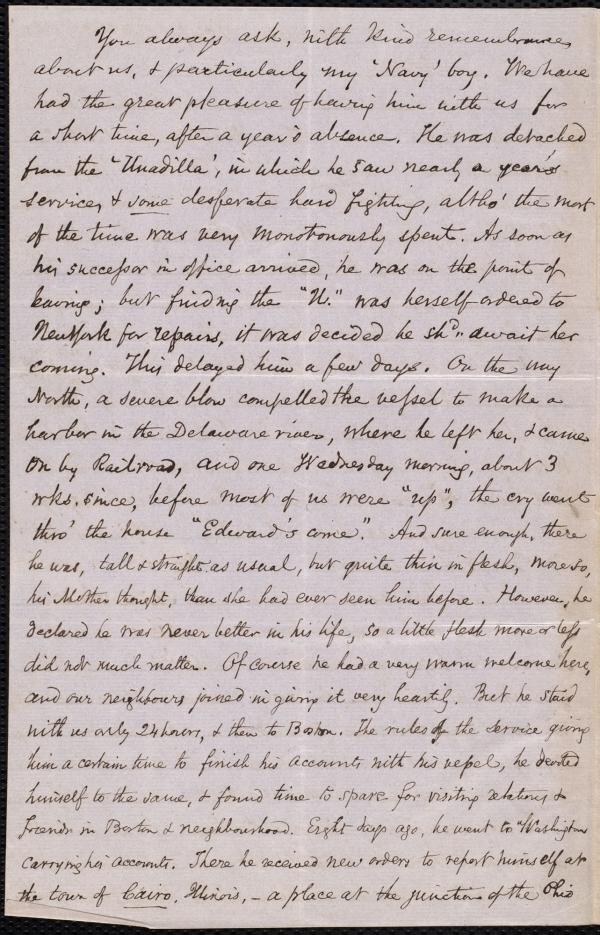 You always ask, with kind remembrances,
about us, & particularly my 'Navy' boy. We have
had the great pleasure of having him with us for
a short time, after a year's absence. He was detached
from the 'Unadilla', in which he saw nearly a year's
service, & some desperate hard fighting, altho' the most
of the time was very monotonously spent. As soon as
his successor in office arrived, he was on the point of
leaving; but finding the "U." was herself ordered to
New York for repairs, it was decided he shd. await her
coming. This delayed him a few days. On the way
North, a severe blow compelled the vessel to make a
harbor in the Delaware river, where he left her, & came
on by Railroad, and one Wednesday morning, about 3
wks. since, before most of us were "up", the cry went
thro' the house "Edward's come". And sure enough, there
he was, tall & straight as usual, but quite thin in flesh, more so,
his Mother thought, than she had ever seen him before. However, he
declared he was never better in his life, so a little flesh more or less
did not much matter. Of course he had a very warm welcome here,
and our neighbours joined in giving it very heartily. But he staid
with us only 24 hours, & then to Boston. The rules of the service giving
him a certain time to finish his accounts with his vessel, he devoted
himself to the same, & found time to spare for visiting relations &
friends in Boston & neighbourhood. Eight days ago, he went to Washington
carrying his accounts. There he received new orders to report himself at
the town of Cairo, Illinois, - a place at the junction of the Ohio